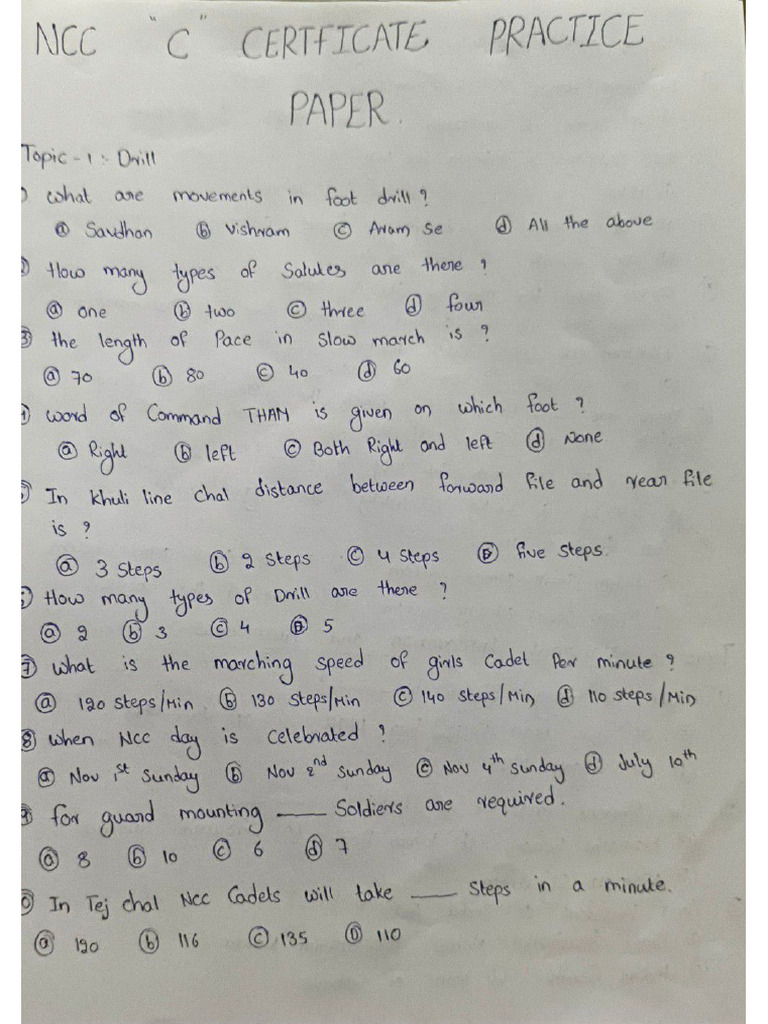 NCC "C" CERTFICATE PRACTICE
PAPER.
Topic - 1 :- Drill
) what are movements in foot drill?
ⓐ Savdhan ⓑ Vishram ⓒ Aram Se ⓓ All the above
) How many types of Salutes are there ?
ⓐ one ⓑ two ⓒ three ⓓ four
3) the length of Pace in slow march is ?
ⓐ 70 ⓑ 80 ⓒ 40 ⓓ 60
) word of Command THAM is given on which foot ?
ⓐ Right ⓑ left ⓒ Both Right and left ⓓ None
) In khuli line chal distance between forward file and rear file
is ?
ⓐ 3 steps ⓑ 2 steps ⓒ 4 steps ⓓ five steps.
) How many types of Drill are there ?
ⓐ 2 ⓑ 3 ⓒ 4 ⓓ 5
7) what is the marching speed of girls Cadet Per minute ?
ⓐ 120 steps/Min ⓑ 130 steps/Min ⓒ 140 steps/Min ⓓ 110 steps/Min
8) when Ncc day is celebrated ?
ⓐ Nov 1st Sunday ⓑ Nov 2nd Sunday ⓒ Nov 4th Sunday ⓓ July 10th
9) for guard mounting ___ Soldiers are required.
ⓐ 8 ⓑ 10 ⓒ 6 ⓓ 7
0) In Tej chal Ncc Cadets will take ___ steps in a minute.
ⓐ 120 ⓑ 116 ⓒ 135 Ⓓ 110